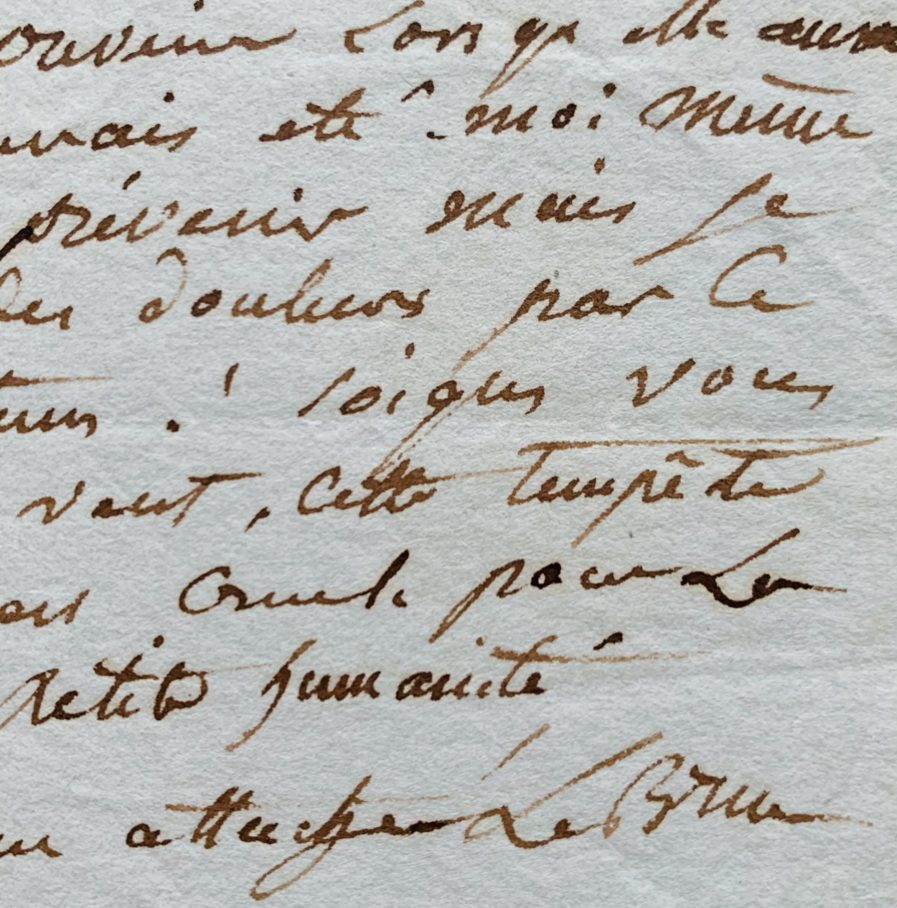 ouvenir Lors qu elle aura
urais eté moi même
prévenir mais je
des douleurs par Ce
tems ! soignes vous
vent, Cette tempête
Cruele pour La
petite humanité
attaché Le Brun